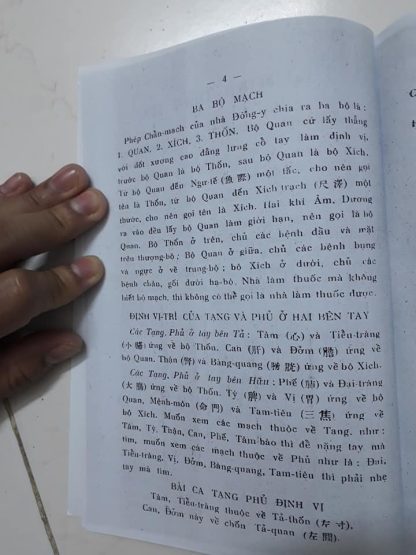 — 4 —
BA BỘ MẠCH
Phép Chẩn-mạch của nhà Đông-y chia ra ba bộ là:
1. QUAN, 2. XÍCH, 3. THỐN. Bộ Quan cứ lấy thẳng
với đốt xương cao đằng lưng cổ tay làm định vị,
trước bộ Quan là bộ Thốn, sau bộ Quan là bộ Xích.
Từ bộ Quan đến Ngư-tế (魚際) một tấc, cho nên gọi
tên là Thốn, từ bộ Quan đến Xích trạch (尺澤) một
thước, cho nên gọi tên là Xích. Hai khí Âm, Dương
ra vào đều lấy bộ Quan làm giới hạn, nên gọi là bộ
Quan. Bộ Thốn ở trên, chủ các bệnh đầu và mặt
trên thượng-bộ; Bộ Quan ở giữa, chủ các bệnh bụng
và ngực ở về trung-bộ; bộ Xích ở dưới, chủ các
bệnh chân, gối dưới ha-bộ. Nhà làm thuốc mà không
biết bộ mạch, thì không có thể gọi là nhà làm thuốc được.
ĐỊNH VỊ-TRÍ CỦA TẠNG VÀ PHỦ Ở HAI BÊN TAY
Các Tạng, Phủ ở tay bên Tả: Tâm (心) và Tiểu-tràng
(小腸) ứng về bộ Thốn. Can (肝) và Đởm (膽) ứng về
bộ Quan. Thận (腎) và Bàng-quang (膀胱) ứng về bộ Xích.
Các Tạng, Phủ ở tay bên Hữu: Phế (肺) và Đại-tràng
(大腸) ứng về bộ Thốn. Tỳ (脾) và Vị (胃) ứng về bộ
Quan, Mệnh-môn (命門) và Tam-tiêu (三焦) ứng về
bộ Xích. Muốn xem các mạch thuộc về Tạng, như:
Tâm, Tỳ, Thận, Can, Phế, Tâm bào thì đè nặng tay mà
tìm, muốn xem các mạch thuộc về Phủ như là: Đại,
Tiểu-tràng, Vị, Đởm, Bàng-quang, Tam-tiêu thì phải nhẹ
tay mà tìm.
BÀI CA TẠNG PHỦ ĐỊNH VỊ
Tâm, Tiểu-tràng thuộc về Tả-thốn (左寸),
Can, Đởm này về chốn Tả-quan (左關),